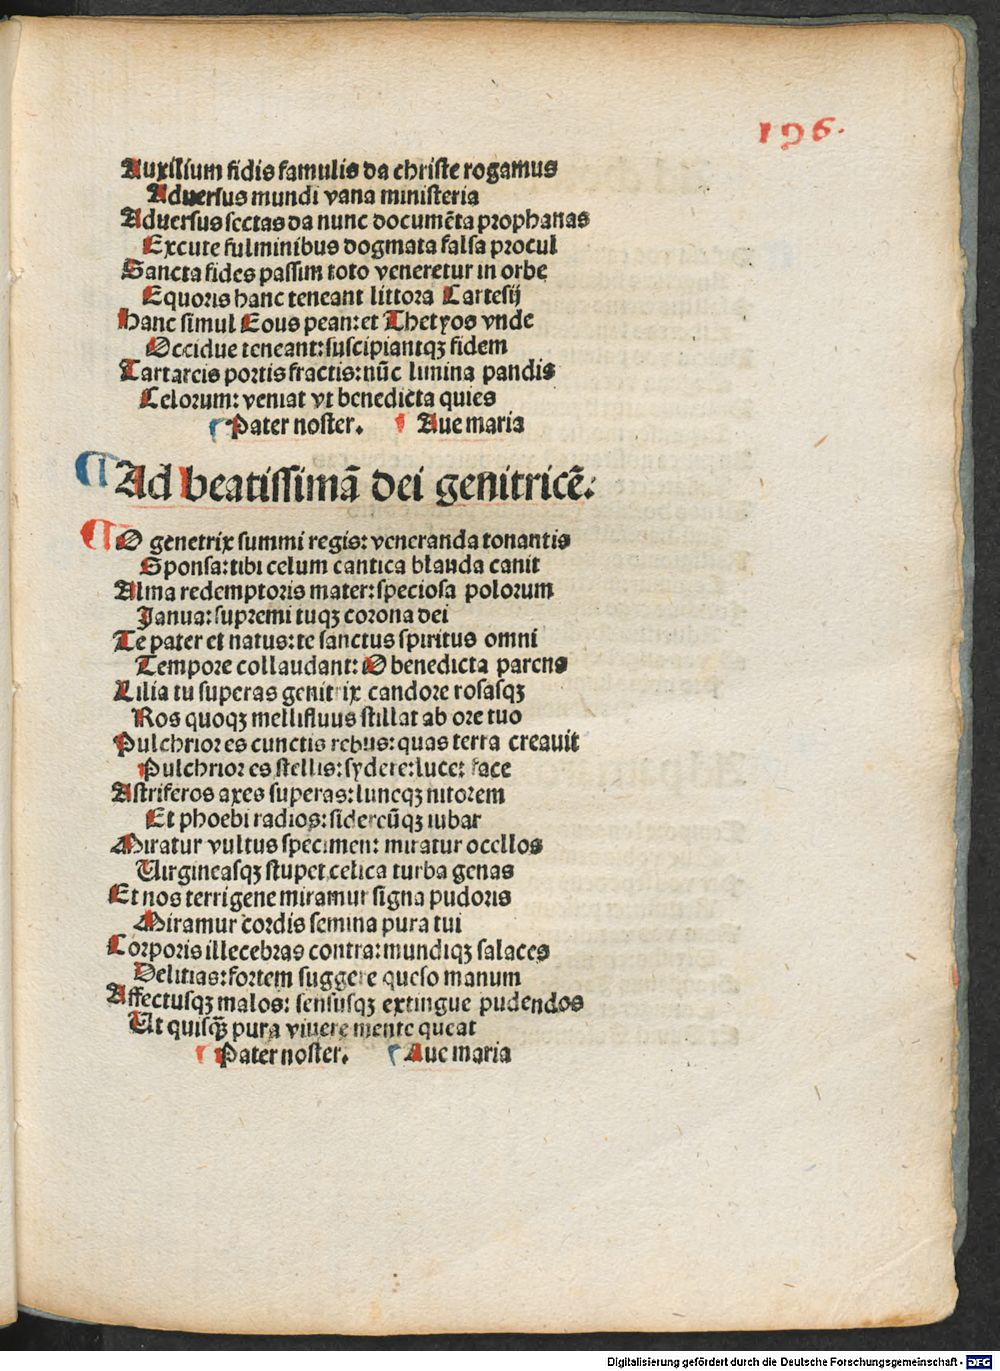 196.
Auxilium fidis famulis da christe rogamus
Aduersus mundi vana ministeria
Aduersus sectas da nunc documēta prophanas
Excute fulminibus dogmata falsa procul
Sancta fides passim toto veneretur in orbe
Equoris hanc teneant littora Cartesij
Hanc simul Eous pean: et Thetyos vnde
Occidue teneant: suscipiantqꝫ fidem
Tartareis portis fractis: nūc limina pandis
Celorum: veniat vt benedicta quies
Pater noster. Aue maria
Ad beatissimā dei genitricē.
O genetrix summi regis: veneranda tonantis
Sponsa: tibi celum cantica blanda canit
Alma redemptoris mater: speciosa polorum
Janua: supremi tuqꝫ corona dei
Te pater et natus: te sanctus spiritus omni
Tempore collaudant: O benedicta parens
Lilia tu superas genitrix candore rosasqꝫ
Ros quoqꝫ mellifluus stillat ab ore tuo
Pulchrior es cunctis rebus: quas terra creauit
Pulchrior es stellis: sydere: luce: face
Astriferos axes superas: luneqꝫ nitorem
Et phoebi radios: sidereūqꝫ iubar
Miratur vultus specimen: miratur ocellos
Uirgineasqꝫ stupet celica turba genas
Et nos terrigene miramur signa pudoris
Miramur cordis semina pura tui
Corporis illecebras contra: mundiqꝫ salaces
Delitias: fortem suggere queso manum
Affectusqꝫ malos: sensusqꝫ extingue pudendos
Ut quisqꝫ pura viuere mente queat
Pater noster. Aue maria
Digitalisierung gefördert durch die Deutsche Forschungsgemeinschaft - DFG